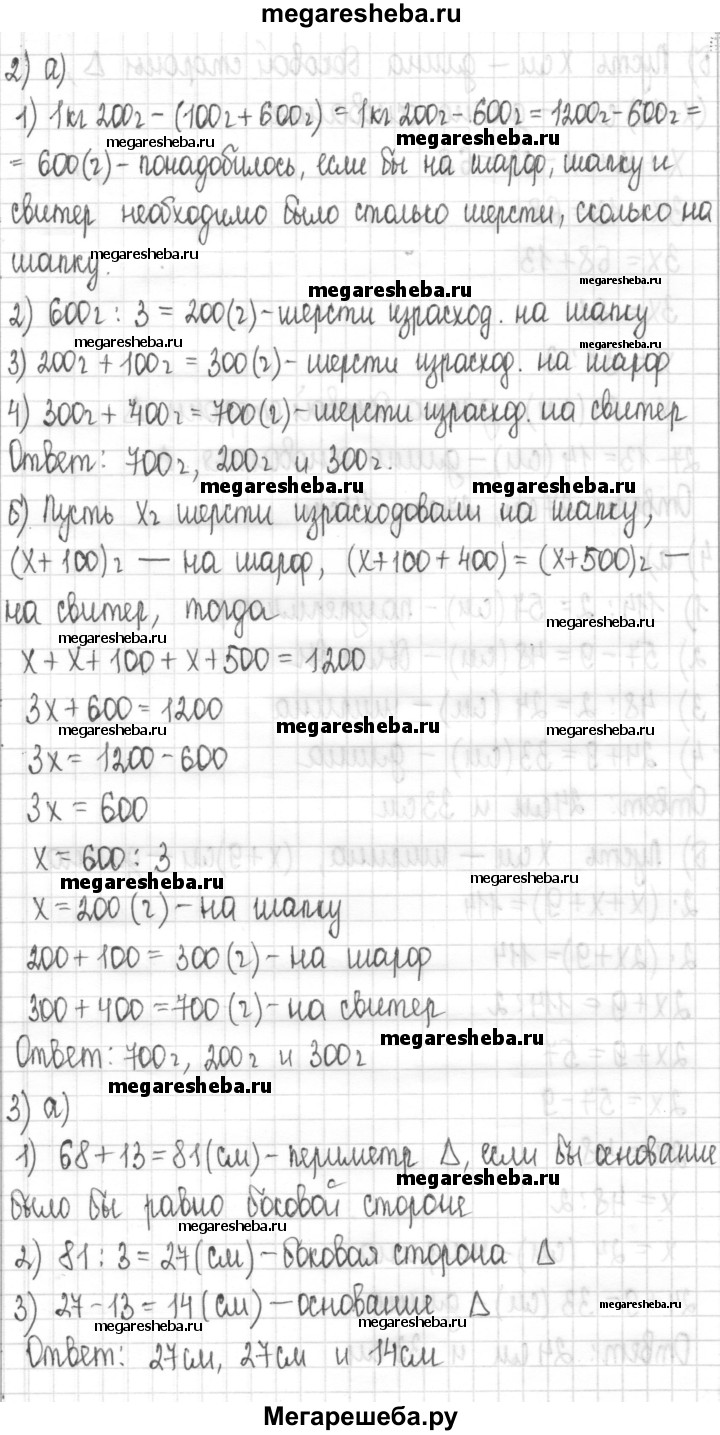 megaresheba.ru
2) а)
1) 1кг 200г – (100г + 600г) = 1кг 200г – 600г = 1200г – 600г =
megaresheba.ru megaresheba.ru
= 600(г) – понадобилось, если бы на шарф, шапку и
свитер необходимо было столько шерсти, сколько на
шапку.
megaresheba.ru megaresheba.ru megaresheba.ru
2) 600г : 3 = 200(г) – шерсти израсход. на шапку
megaresheba.ru megaresheba.ru
3) 200г + 100г = 300(г) – шерсти израсход. на шарф
4) 300г + 400г = 700(г) – шерсти израсход. на свитер
Ответ: 700г, 200г и 300г.
megaresheba.ru megaresheba.ru
б) Пусть хг шерсти израсходовали на шапку,
(х + 100)г — на шарф, (х + 100 + 400) = (х + 500)г —
на свитер, тогда
megaresheba.ru megaresheba.ru
х + х + 100 + х + 500 = 1200
3х + 600 = 1200
megaresheba.ru megaresheba.ru megaresheba.ru
3х = 1200 – 600
3х = 600
х = 600 : 3
megaresheba.ru megaresheba.ru
х = 200 (г) – на шапку
200 + 100 = 300 (г) – на шарф
300 + 400 = 700 (г) – на свитер
megaresheba.ru
Ответ: 700г, 200г и 300г
megaresheba.ru
3) а)
1) 68 + 13 = 81(см) – периметр Δ, если бы основание
megaresheba.ru
было бы равно боковой стороне
megaresheba.ru
2) 81 : 3 = 27(см) – боковая сторона Δ
3) 27 – 13 = 14 (см) — основание Δ
megaresheba.ru megaresheba.ru megaresheba.ru
Ответ: 27см, 27см и 14см
Мегарешеба.ру